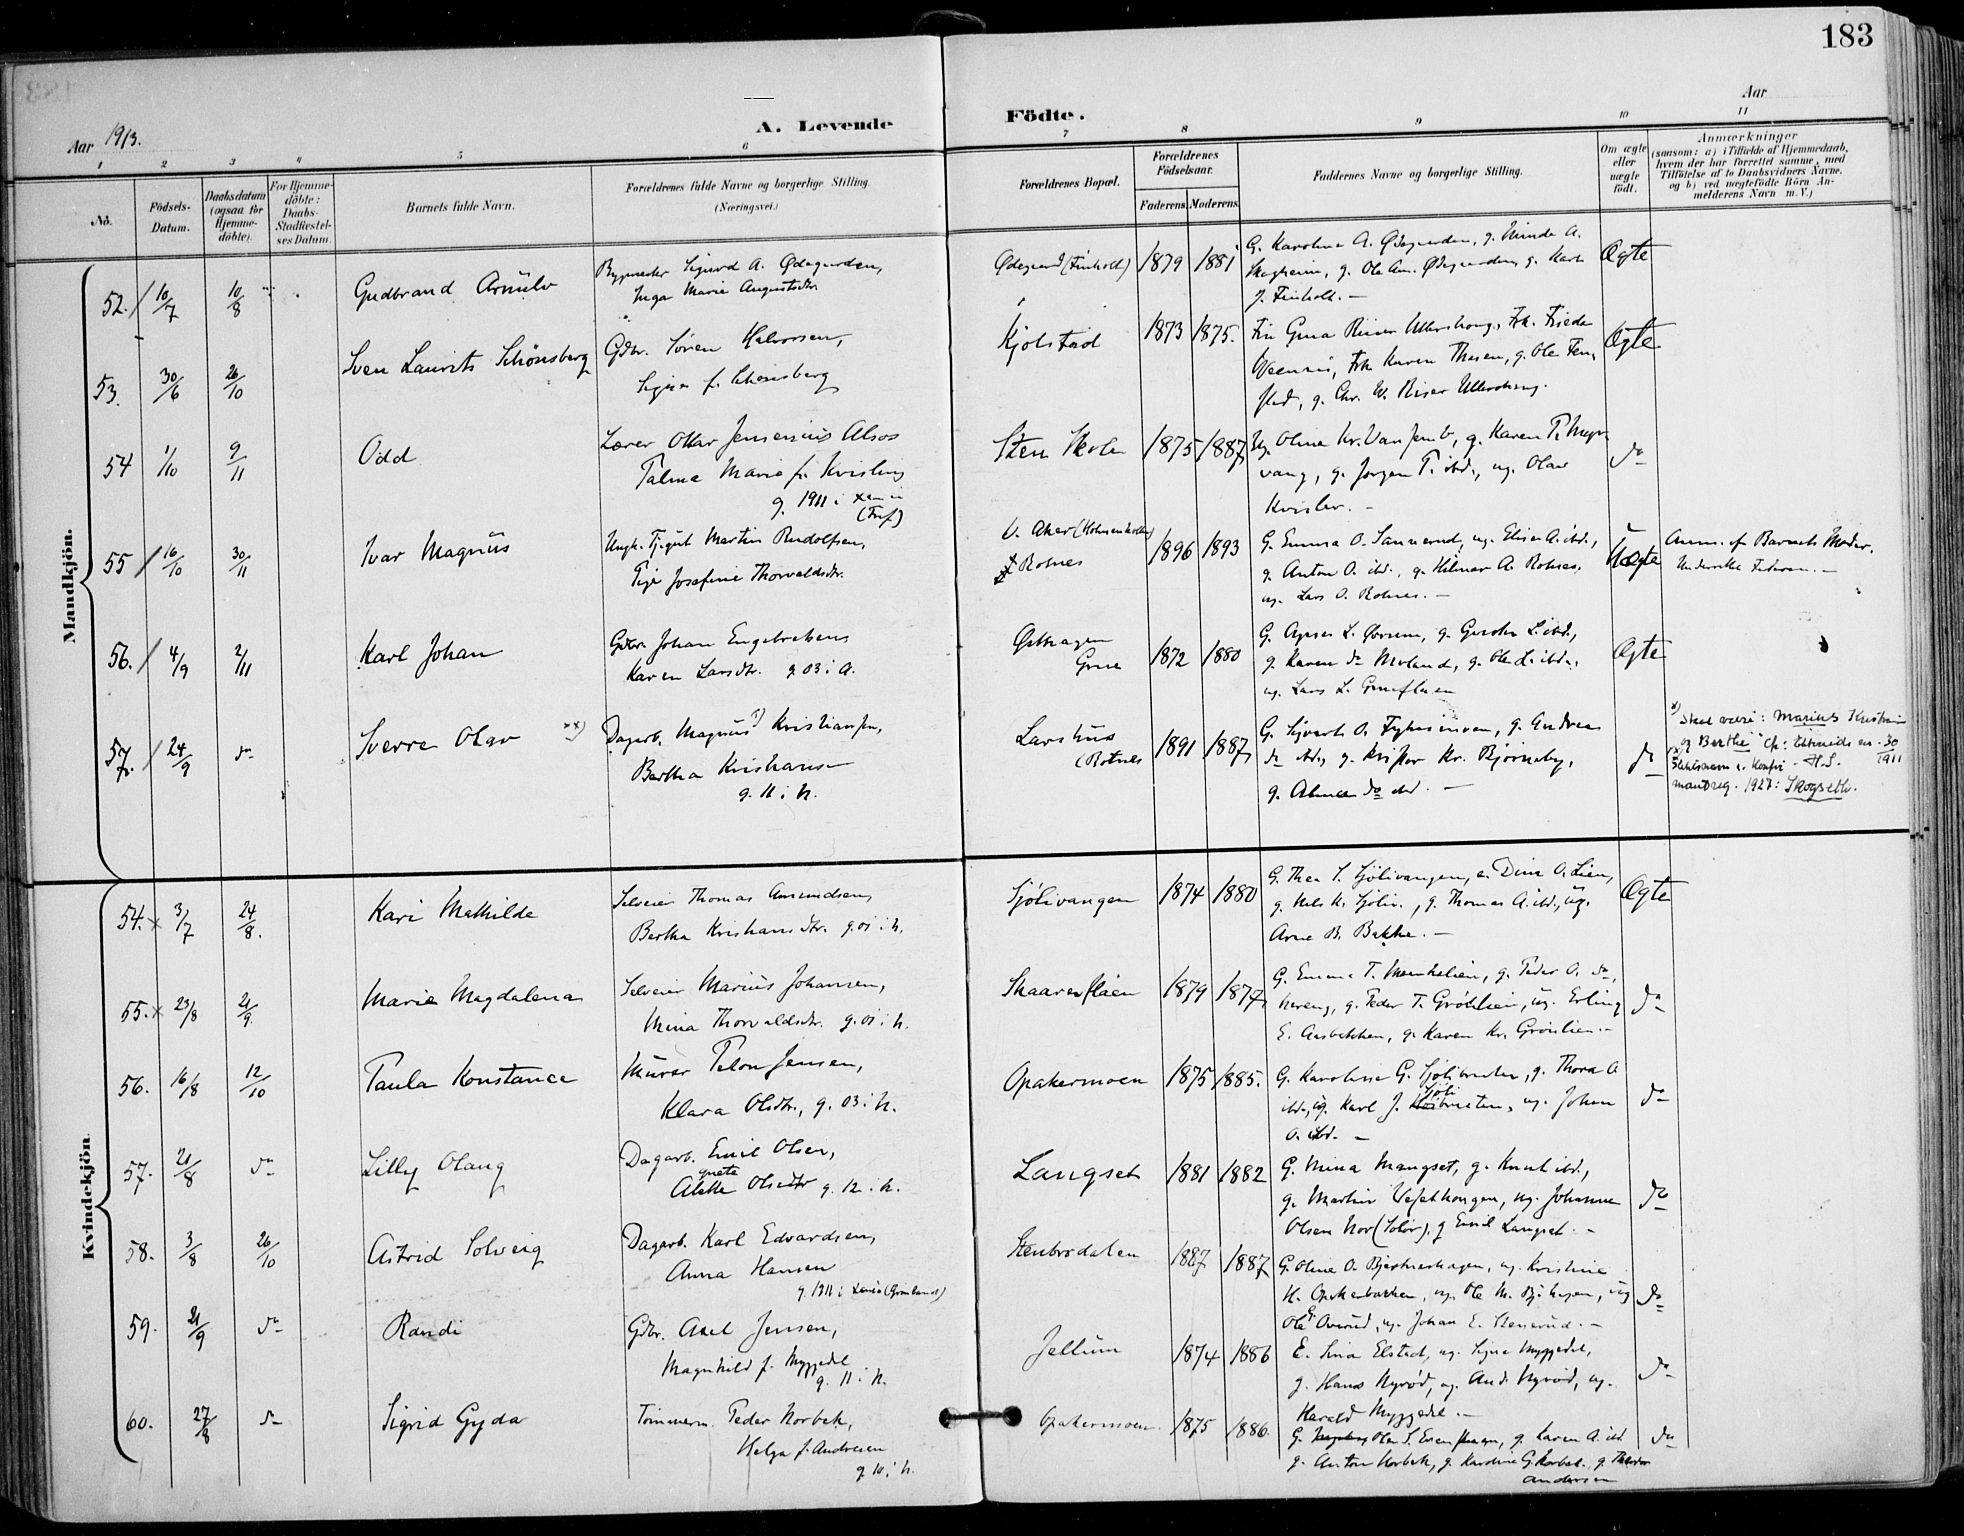 183
Aar 1913.
A. Levende Födte.
Aar
1 2 3 4 5 6 7 8 9 10 11
No.
Födsels-
Datum.
Daabsdatum
(ogsaa for
Hjemme-
döbte).
For Hjemme-
döbte:
Daabs-
Stadfæstel-
ses Datum.
Barnets fulde Navn.
Forældrenes fulde Navne og borgerlige Stilling.
(Næringsvei.)
Forældrenes Bopæl.
Forældrenes
Födselsaar.
Faderens. Moderens.
Faddernes Navne og borgerlige Stilling.
Om ægte
eller
uægte
født.
Anmærkninger
(saasom: a) i Tilfælde af Hjemmedaab,
hvem der har forrettet samme, med
Tilföielse af to Daabsvidners Navne.
og b) ved uægtefödte Börn An-
melderens Navn m. V.)
Mandkjön.
52. 10/7 10/8 Gudbrand Arnulv
Sigurd A. Ødegaarden,
Inga Marie Augustsdtr.
Ødegaard (Finholt) 1879 1881
G. Karoline A. Ødegaarden, g. Minda A.
Skogheim, g. Ole Am. Ødegaarden, g. Karl
J. Finholt. —
Ægte
53. 30/6 26/10 Sven Laurits Schönsberg
Gdbr. Sören Halvorsen,
Signe f. Schönsberg
Kjölstad 1873 1875.
Fru Gina Riiser Ullershong, Frk. Frieda
Frk. Karen Thesen, g. Ole Fen-
stad, g. Chr. W. Riiser Ullershong.
Ægte
54 1/10 9/11 Odd
Lærer Olav Jensenius Alsos
Talma Marie f. Kvisling
g. 1911 i
Sten Skole 1875 1887
Olina Kr. g. Karen P.
vang, g. Jørgen P. ibd., ug. Olav
Kvisler. —
do
55 16/10 30/11 Ivar Magnus
Ungk. Martin Rudolfsen,
Pige Josefine Thorvaldsdtr.
V. Aker (Holmenkollen)
Rotnes 1896 1893
G. Emma O. Sannerud, ug. Elise A. ibd.,
g. Anton O. ibd., g. Hilmar A. Rotnes,
ug. Lars O. Rotnes. —
Uægte
Anm. af Barnets Moder.
Underrette Faderen. —
56. 4/9 2/11 Karl Johan
Gdbr. Johan Engebretsen
Karen Larsdtr. g. 03 i A.
Østhagen
Grue 1872 1880
G. Agnes L. g. L. ibd.,
g. Karen do Moland, g. Ole L. ibd.,
ug. Lars L.
Ægte
57. 24/9 do Sverre Olav xx)
Dagarb. Magnus x) Kristiansen,
Bertha Kristiansen
g. 11 i N.
Larshus
(Rotnes 1891 1887
G. Sjovert O. g. Andrea
do ibd., g. Kristian Kr. Bjørneby,
g. Alma do ibd. —
do
x) Skal være: Marius Kristian
og Berthe
H.S. 30/1 1911
Slektsnavn e. konfir-
mantreg. 1927: Skogseth.
Kvindekjön
54. x 3/7 24/8. Kari Mathilde
Selveier Thomas Amundsen,
Bertha Kristiansdtr. g. 01 i N.
Sjölivangen 1874 1880
G. Thea S. Sjölivangen, e. Dina O. Lien,
g. Nils K. Sjöliv., g. Thomas A. ibd., ug.
Arne B. Bakke. —
Ægte
55. x 23/8 21/9. Marie Magdalena
Selveier Marius Johansen,
Mina Thorvaldsdtr. g. 01 i N.
Skaareflaen 1879 1877
G. Emma T. g. Peder O. do,
g. Peder T. Grönlien, ug. Erling
E. Aasbekken, g. Karen Kr. Grönlien. —
do
56. 16/8 12/10 Paula Konstance
Murer Jensen,
Klara Olsdtr., g. 03 i N.
Opakermoen 1875 1885.
G. Karoline G. g. Thora O
ibd., ug. Karl J. Sjölibraten, ug. Johan
O. ibd. —
do
57. 21/8 do Lilly Olaug
Dagarb. Emil Olsen,
Olsdtr g. 12 i N.
Langset 1881 1882
G. Mina Mangset, g. Knut ibd.,
g. Martin ug. Johanne
Olsen Nor (Solør), g. Emil Langset. —
do
58. 3/8 26/10 Astrid Solveig
Dagarb. Karl Edvardsen,
Anna Hansen
g. 1911 i (Grønland)
Stenbrodalen 1887 1887
G. Oline O. ug. Kristine
H. Opakerbakken, ug. Ole M. ug
Ole G. Overud, ug. Johan E. Stenerud. —
do
59. 21/9 do Randi
Gdbr. Axel Jensen,
Magnhild f. Myggedel
g. 11 i N.
Jellum 1874 1886
E. Lina Elstad, ug. Signe Myggedel,
g. Hans Nyröd, ug. And. Nyröd, ug.
Harald Myggedel. —
do
60. 27/8 do Sigrid Gyda
Tömmerm. Peder Norbek,
Helga f. Andresen
g. 10 i N.
Opakermoen 1875 1886.
G. Olea S. g. Karen A. ibd
g. Anton Norbek, g. Karoline G. Norbek, g. Theodor
Andersen
do